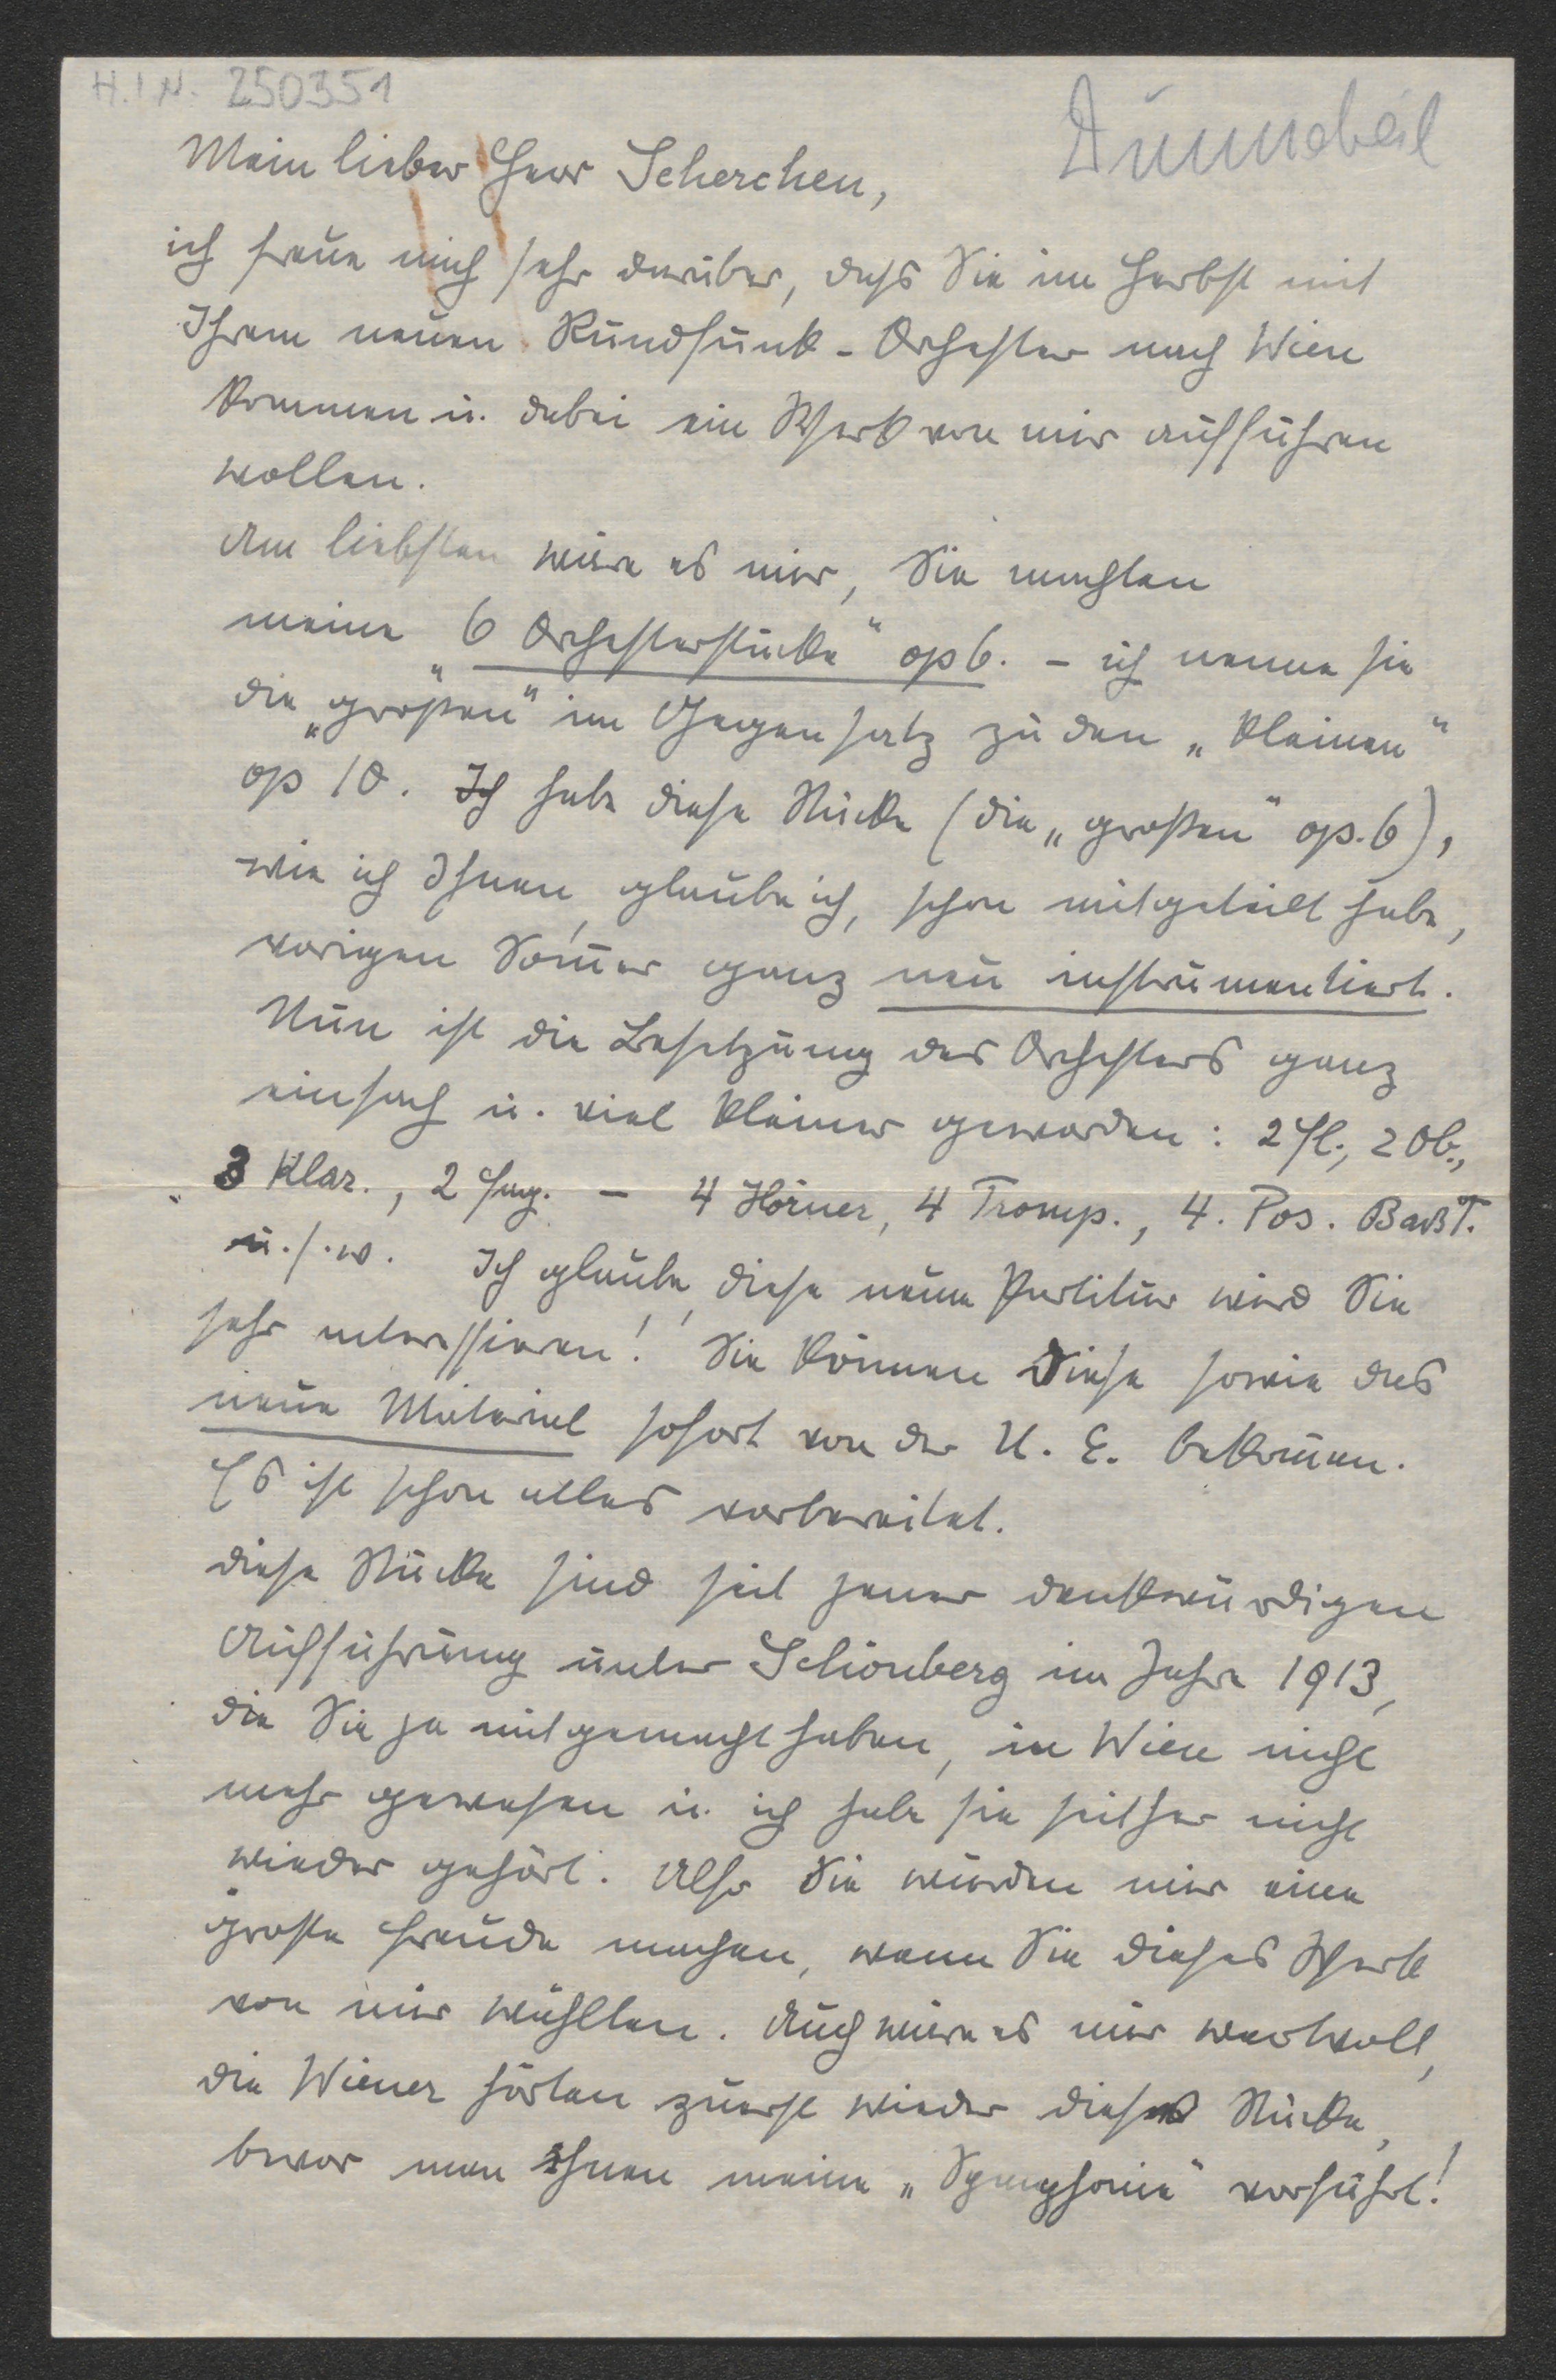 H.I.N. 250351
Mein lieber Herr Scherchen,
ich freue mich sehr darüber, dass Sie im Herbst mit
Ihrem neuen Rundfunk-Orchester nach Wien
kommen u. dabei ein Werk von mir aufführen
wollen.
Am liebsten wäre es mir, Sie machten
meine „6 Orchesterstücke“ op 6. – ich nenne sie
die „großen“ im Gegensatz zu den „kleinen“
op 10. Ich habe diese Stücke (die „großen“ op. 6),
wie ich Ihnen, glaube ich, schon mitgeteilt habe,
vorigen Som̅er ganz neu instrumentiert.
Nun ist die Besetzung des Orchesters ganz
einfach u. viel kleiner geworden: 2 Fl., 2 Ob.,
3 Klar., 2 Fag. – 4 Hörner, 4 Tromp., 4. Pos. BaßT.
u.s.w. Ich glaube, diese neue Partitur wird Sie
sehr interessieren! Sie können diese sowie das
neue Material sofort von der U. E. bekom̅en.
Es ist schon alles vorbereitet.
Diese Stücke sind seit jener denkwürdigen
Aufführung unter Schönberg im Jahre 1913,
die Sie ja mitgemacht haben, in Wien nicht
mehr gewesen u. ich habe sie seither nicht
wieder gehört. Also Sie würden mir eine
große Freude machen, wenn Sie dieses Werk
von mir wählten. Auch wäre es mir wertvoll,
die Wiener hörten zuerst wieder diese Stücke,
bevor man ihnen meine „Symphonie“ vorführt!